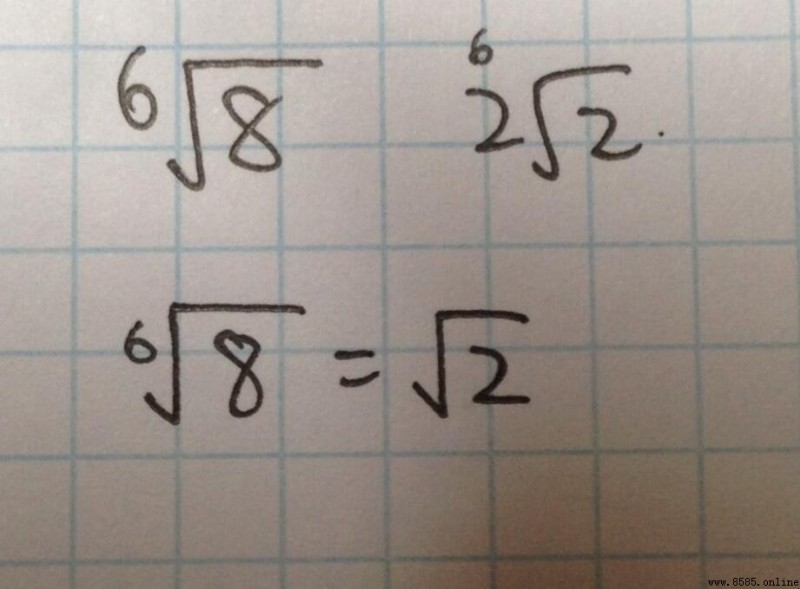 ⁶√8 ⁶2√2.
⁶√8 = √2
www.8585.online